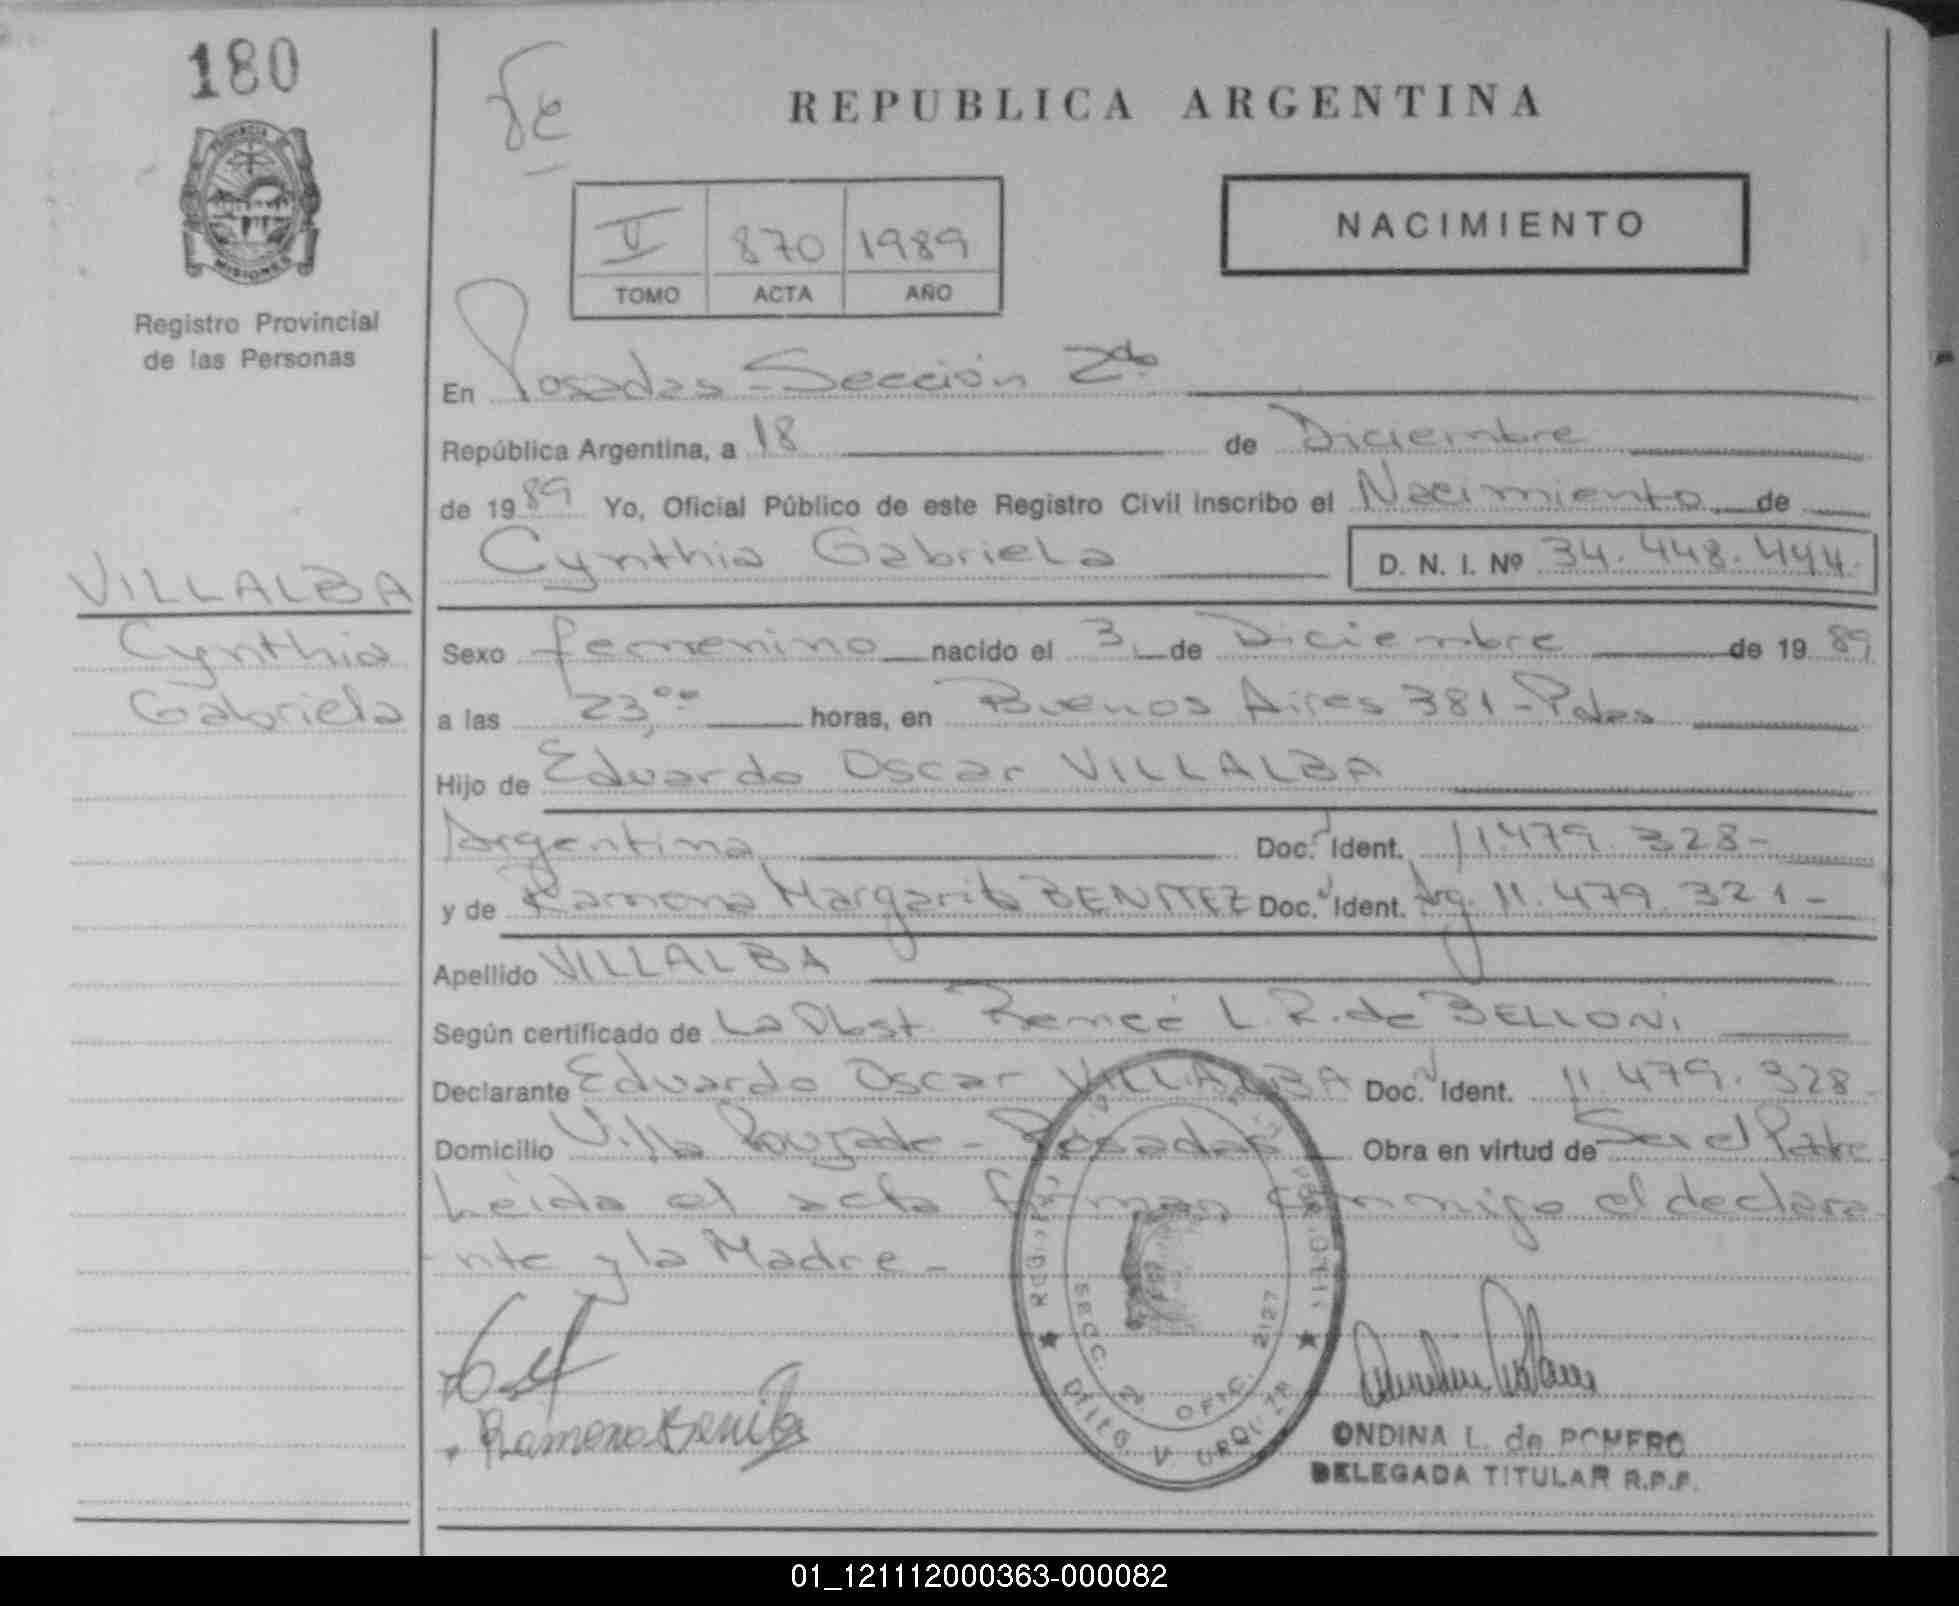 180
REPUBLICA ARGENTINA
PROVINCIA DE
MISIONES
Registro Provincial
de las Personas
NACIMIENTO
II 870 1989
TOMO ACTA AÑO
En Posadas - Sección 2da
República Argentina, a 18 de Diciembre
de 1989 Yo, Oficial Público de este Registro Civil inscribo el Nacimiento de
Cynthia Gabriela D. N. I. Nº 34.448.444.
VILLALBA
Cynthia
Gabriela
Sexo femenino nacido el 3 de Diciembre de 1989
a las 23,00 horas, en Buenos Aires 381 - Pdas
Hijo de Eduardo Oscar VILLALBA
Argentina Doc. Ident. 11.479.328-
y de Ramona Margarita BENITEZ Doc. Ident. Arg. 11.479.321-
Apellido VILLALBA
Según certificado de La Obst. Remeé L. R. de BELLONI
Declarante Eduardo Oscar VILLALBA Doc. Ident. 11.479.328-
Domicilio Villa Poujade - Posadas Obra en virtud de Ser el Padre
Leída el acta firman conmigo el declara-
nte y la Madre -
SECC. 2 OFIC. 2127
DPTO. V. URQUIZA
Ramona Benitez
ONDINA L. de ROMERO
DELEGADA TITULAR R.P.P.
01_121112000363-000082